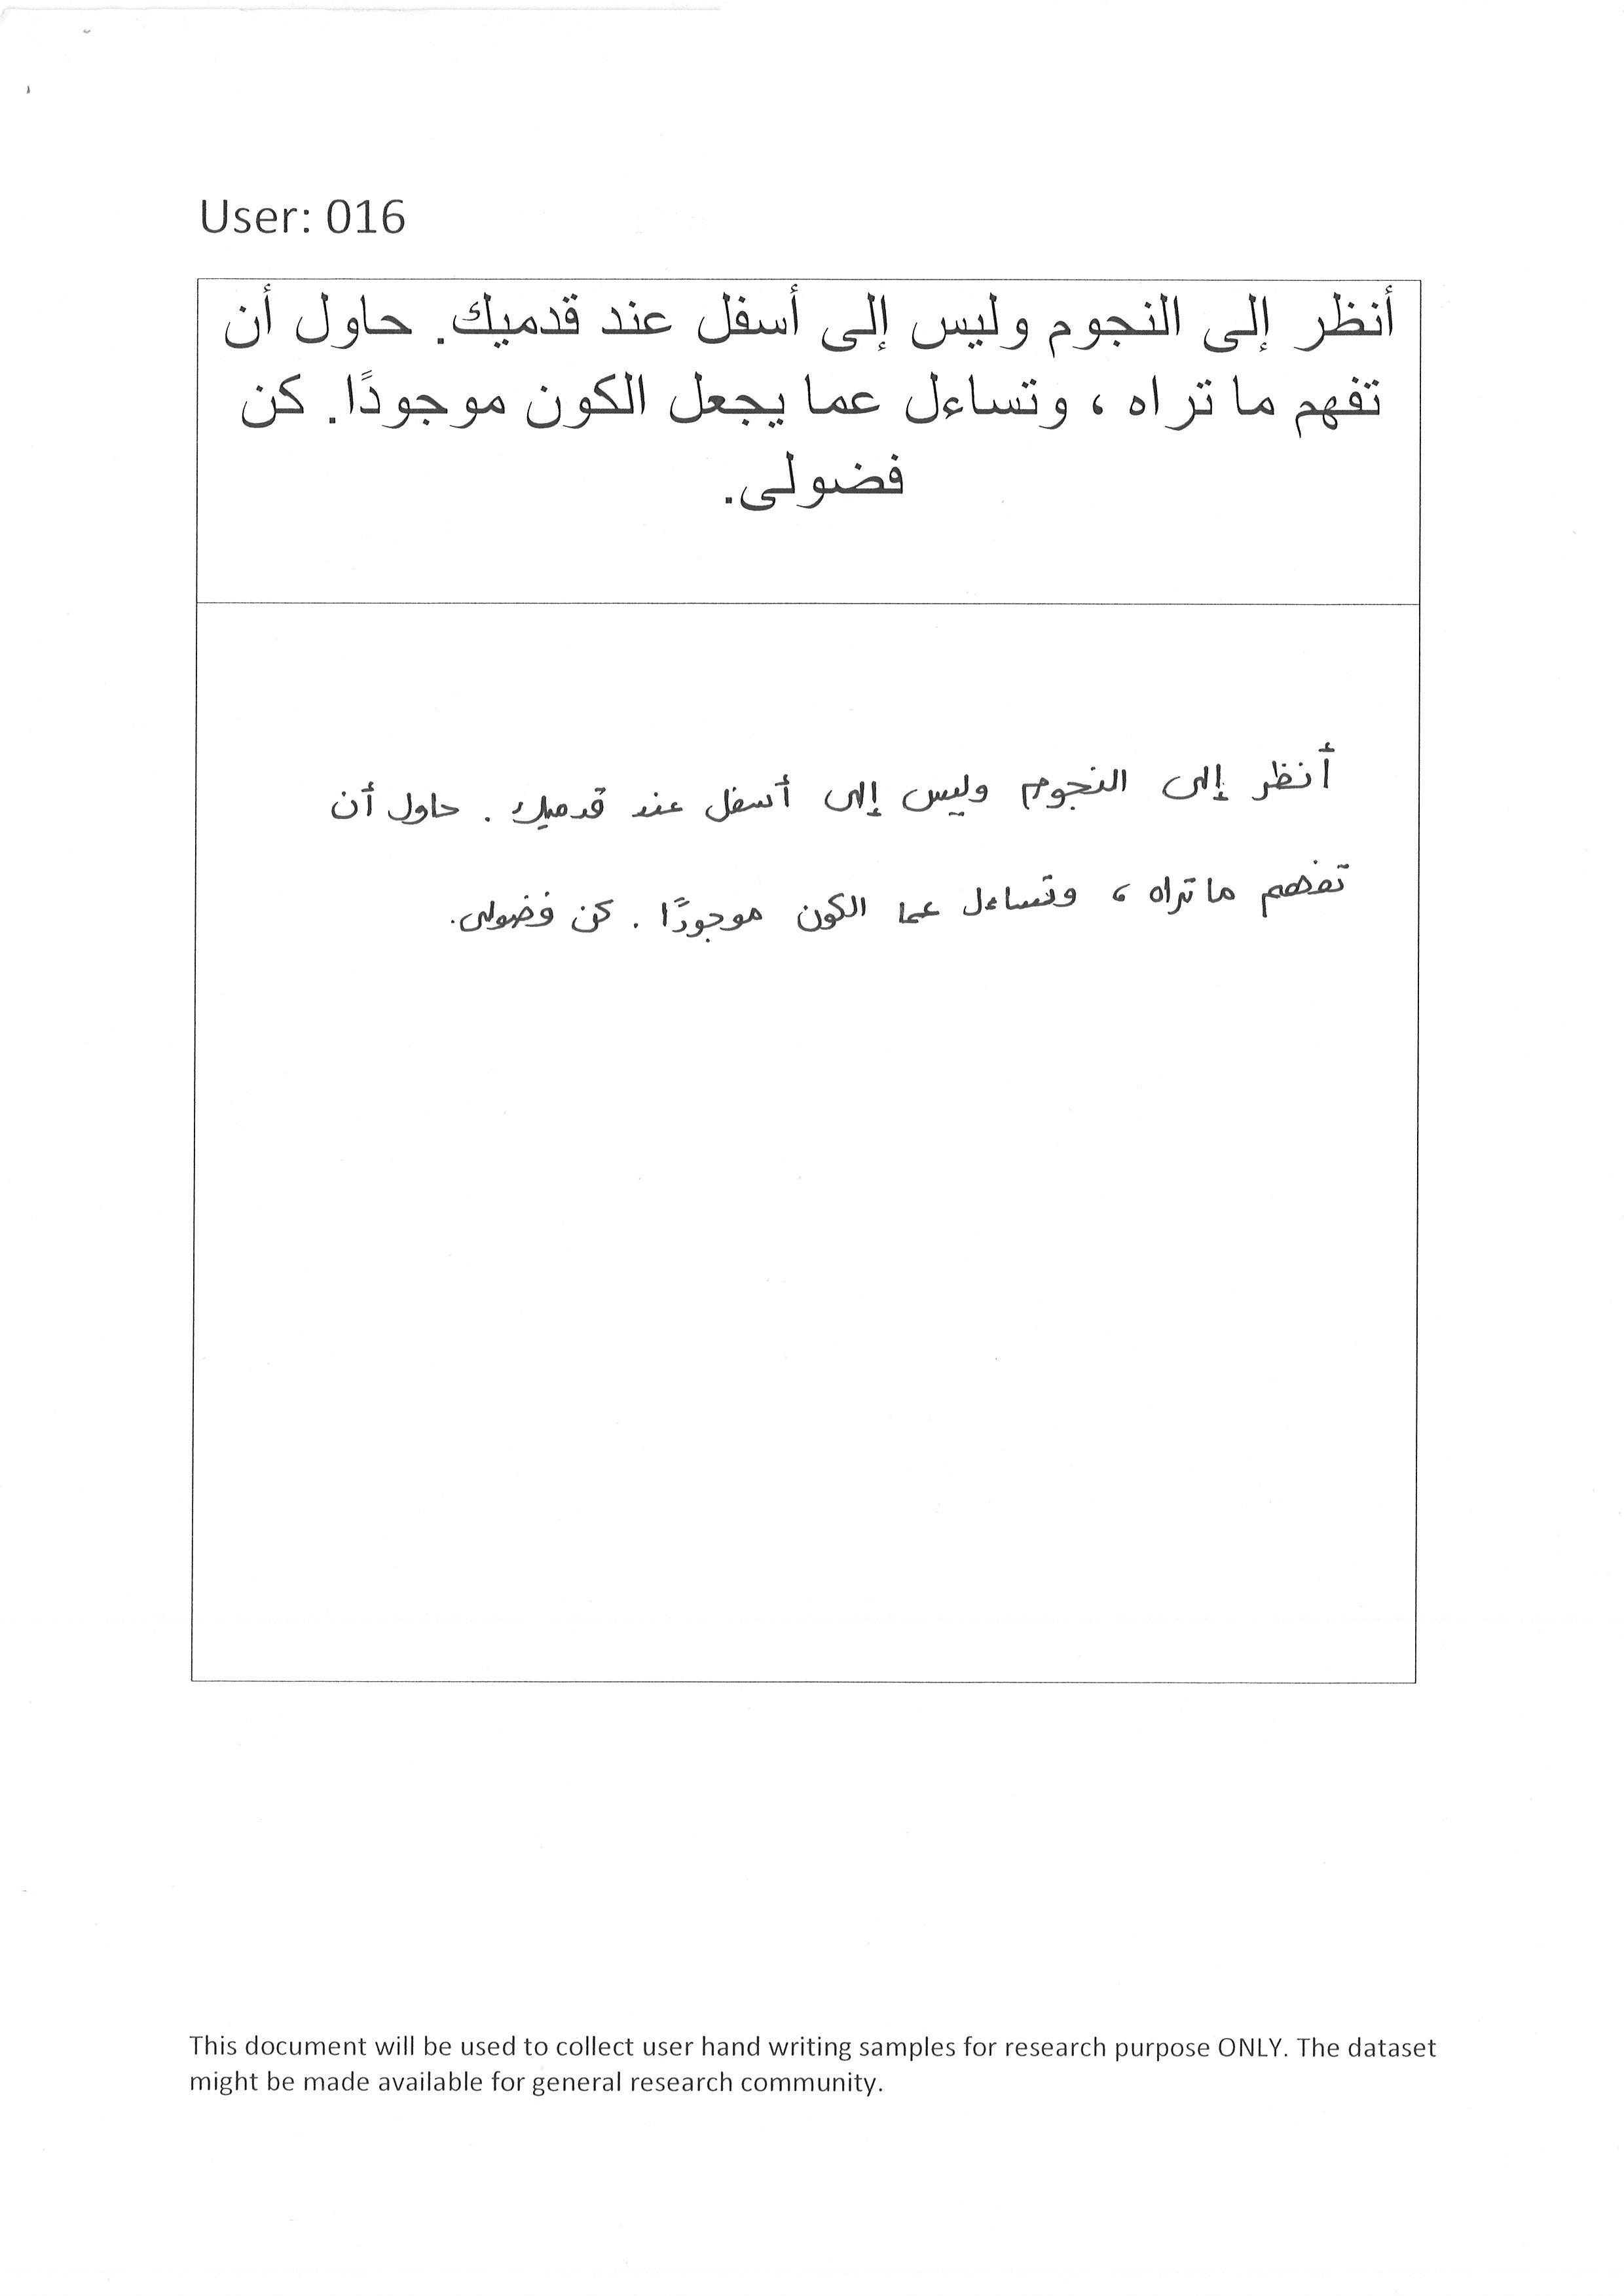 User: 016
أنظر إلى النجوم وليس إلى أسفل عند قدميك. حاول أن
تفهم ما تراه ، وتساءل عما يجعل الكون موجودًا. كن
فضولى.
أنظر إلى النجوم وليس إلى أسفل عند قدميك . حاول أن
تفهم ما تراه ، وتساءل عما الكون موجودًا . كن فضولى.
This document will be used to collect user hand writing samples for research purpose ONLY. The dataset
might be made available for general research community.